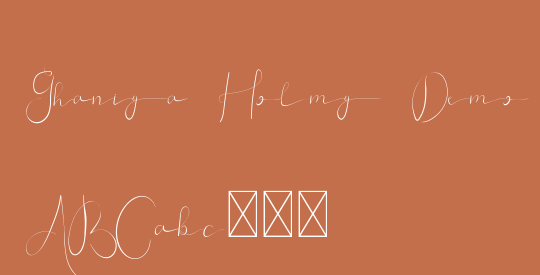 Ghaniya Holmy Demo
ABCabc